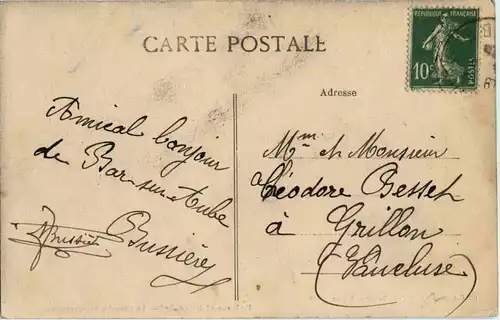 CARTE POSTALE
RÉPUBLIQUE FRANÇAISE
10c
POSTES
Adresse
Amical bonjour
de Bar-sur-Aube
Bussière
Mme et Monsieur
Théodore Besset
à Grillon
(Vaucluse)